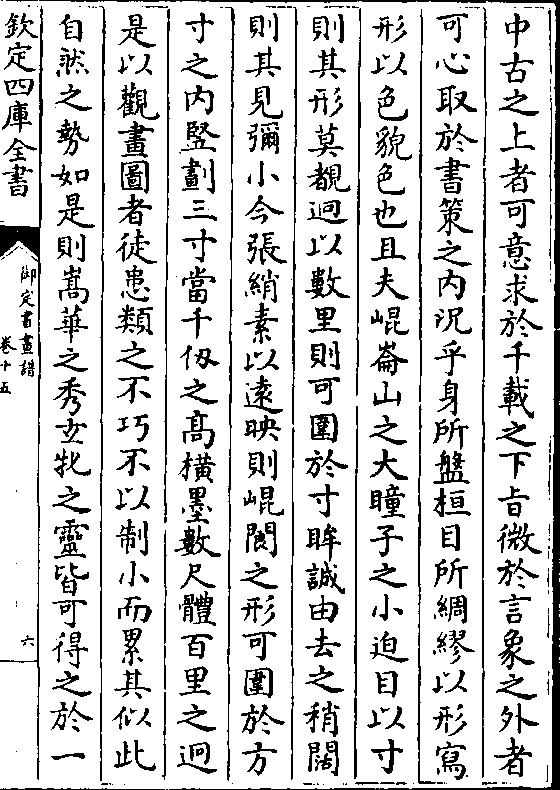 中古之上者可意求於千載之下旨微於言象之外者
可心取於書策之内況乎身所盤桓目所綢繆以形寫
形以色貌色也且夫崐崙山之大瞳子之小迫目以寸
則其形莫覩迥以數里則可圍於寸眸誠由去之稍闊
則其見彌小今張綃素以遠映則崐閬之形可圍於方
寸之内竪劃三寸當千仭之髙横墨數尺體百里之迥
是以觀畫圖者徒患類之不巧不以制小而累其似此
自然之勢如是則嵩華之秀𤣥牝之靈皆可得之於一
欽定四庫全書
御定書畫譜
卷十五
六